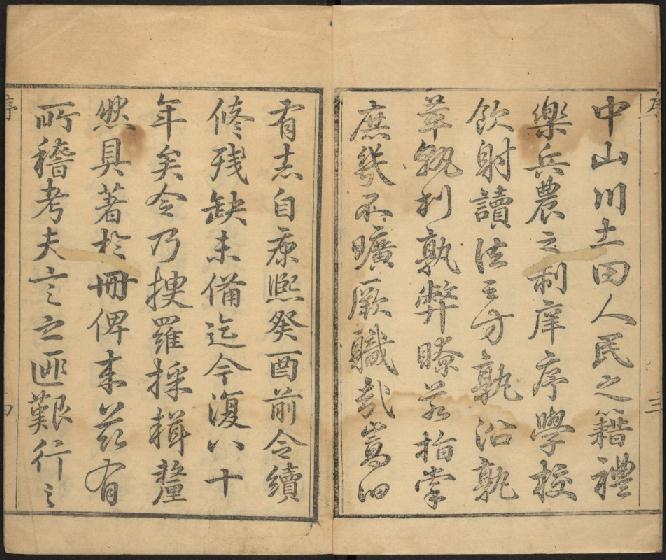 序
三
中山川土田人民之籍禮
樂兵農之制庠序學校
飲射讀法之方孰沿孰
革孰利孰弊瞭若指掌
庶幾不曠厥職哉嵩旧
有志自康熙癸酉前令續
修残缺未備迄今復八十
年矣今乃搜羅採輯釐
然具著於冊俾来茲有
所稽考夫言之匪艱行之
序
四